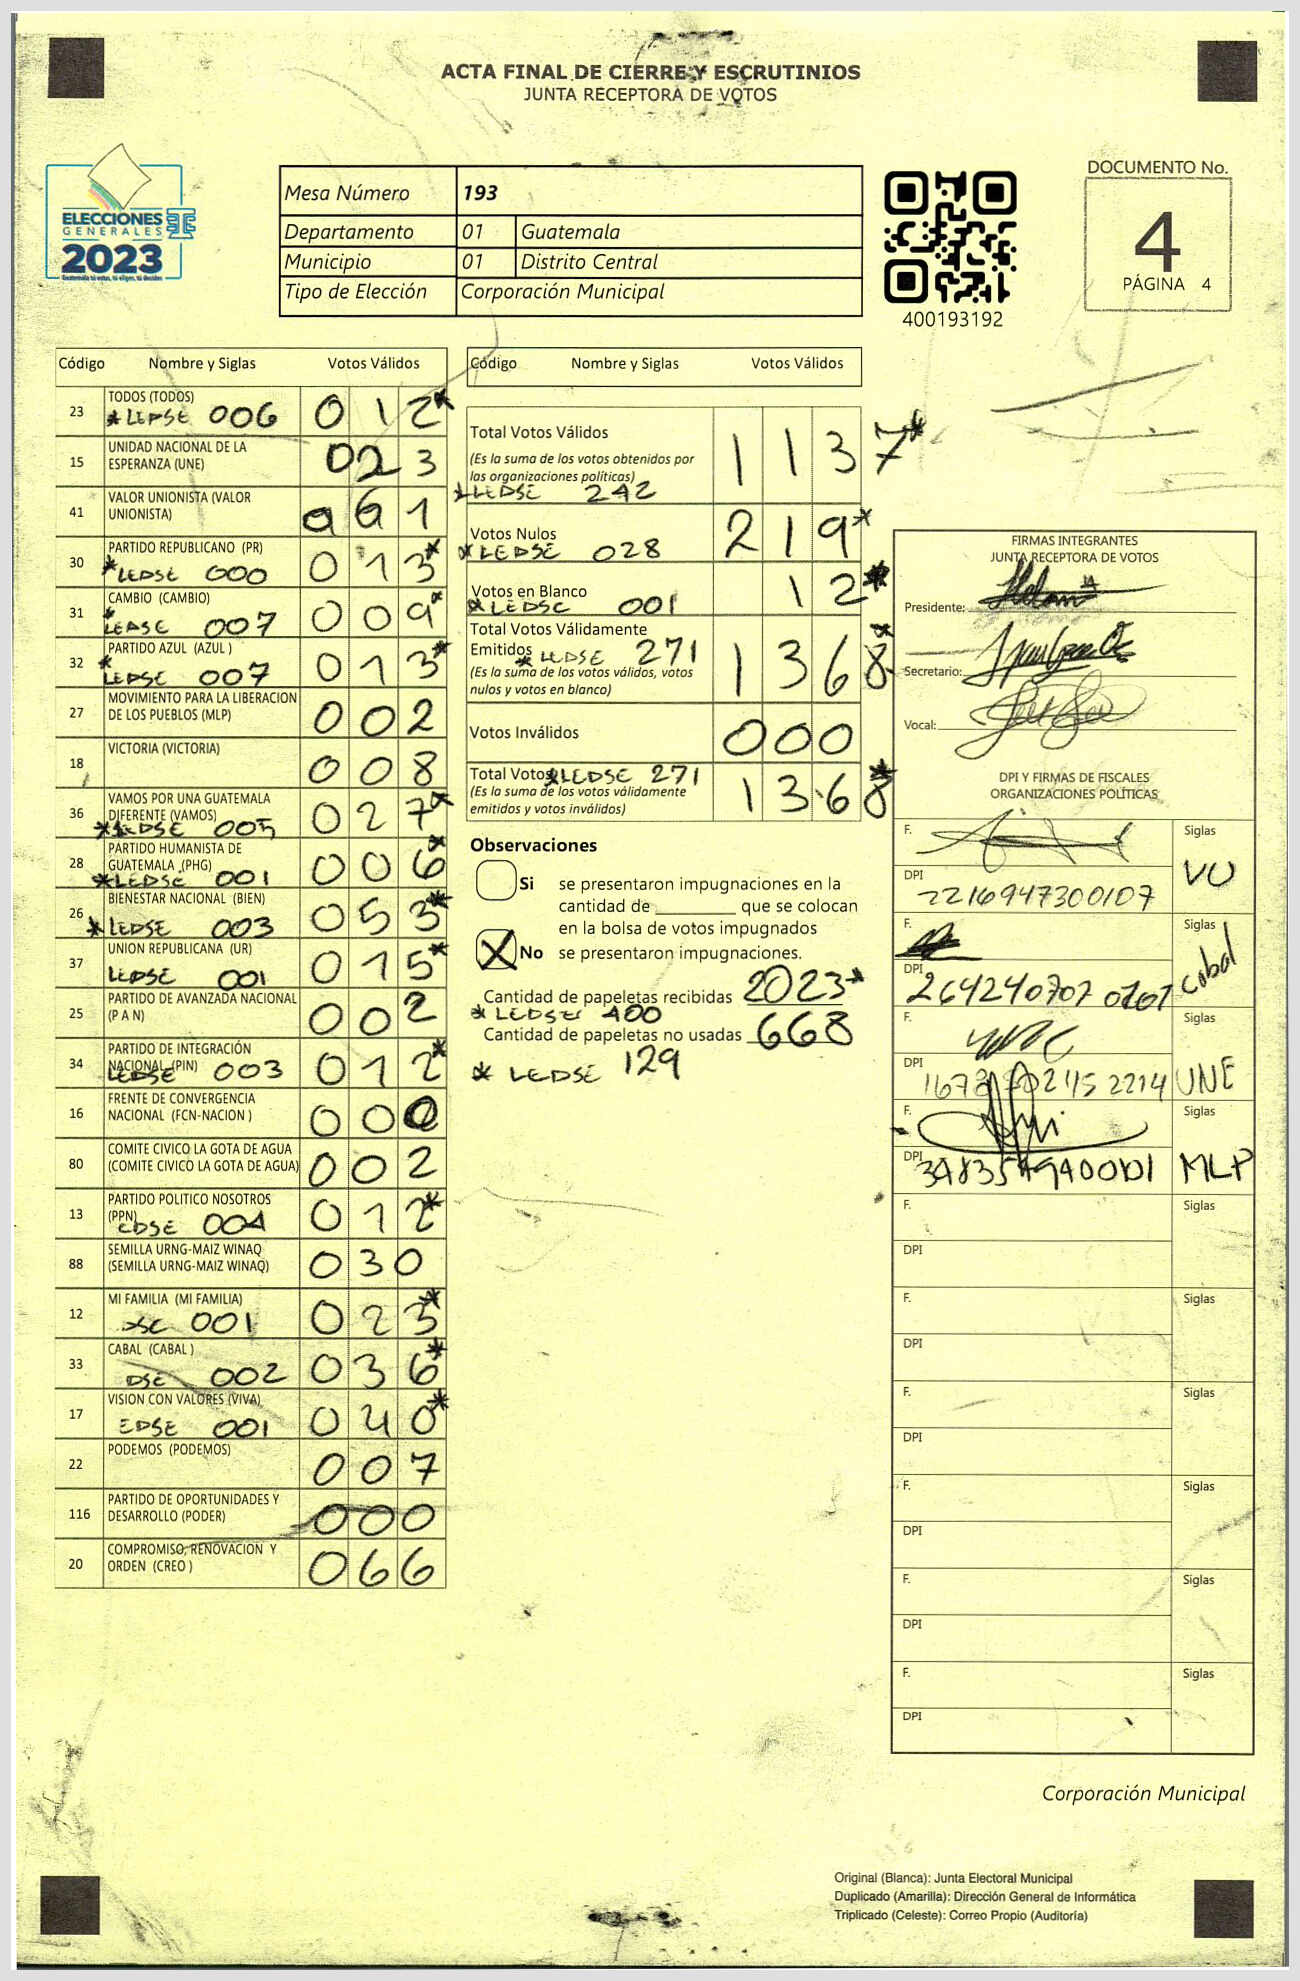 ACTA FINAL DE CIERRE Y ESCRUTINIOS
JUNTA RECEPTORA DE VOTOS
ELECCIONES
GENERALES
2023
Guatemala tú votas, tú eliges, tú decides
Mesa Número 193
Departamento 01 Guatemala
Municipio 01 Distrito Central
Tipo de Elección Corporación Municipal
400193192
DOCUMENTO No.
4
PÁGINA 4
Código Nombre y Siglas Votos Válidos
23 TODOS (TODOS) 012*
*LEDSE 006
15 UNIDAD NACIONAL DE LA
ESPERANZA (UNE) 023
41 VALOR UNIONISTA (VALOR
UNIONISTA) 061
30 PARTIDO REPUBLICANO (PR) 013*
*LEDSE 000
31 CAMBIO (CAMBIO) 009*
*LEDSE 007
32 PARTIDO AZUL (AZUL ) 013*
*LEDSE 007
27 MOVIMIENTO PARA LA LIBERACION
DE LOS PUEBLOS (MLP) 002
18 VICTORIA (VICTORIA) 008
36 VAMOS POR UNA GUATEMALA
DIFERENTE (VAMOS) 027*
*LEDSE 005
28 PARTIDO HUMANISTA DE
GUATEMALA (PHG) 006*
*LEDSE 001
26 BIENESTAR NACIONAL (BIEN) 053*
*LEDSE 003
37 UNION REPUBLICANA (UR) 015*
LEDSE 001
25 PARTIDO DE AVANZADA NACIONAL
(P A N) 002
34 PARTIDO DE INTEGRACIÓN
NACIONAL (PIN) 012*
LEDSE 003
16 FRENTE DE CONVERGENCIA
NACIONAL (FCN-NACION ) 000
80 COMITE CIVICO LA GOTA DE AGUA
(COMITE CIVICO LA GOTA DE AGUA) 002
13 PARTIDO POLITICO NOSOTROS
(PPN) 012*
EDSE 004
88 SEMILLA URNG-MAIZ WINAQ
(SEMILLA URNG-MAIZ WINAQ) 030
12 MI FAMILIA (MI FAMILIA) 023*
DSE 001
33 CABAL (CABAL ) 036*
DSE 002
17 VISION CON VALORES (VIVA) 040*
EDSE 001
22 PODEMOS (PODEMOS) 007
116 PARTIDO DE OPORTUNIDADES Y
DESARROLLO (PODER) 000
20 COMPROMISO, RENOVACION Y
ORDEN (CREO ) 066
Código Nombre y Siglas Votos Válidos
Total Votos Válidos 1137*
(Es la suma de los votos obtenidos por
las organizaciones políticas)
*LEDSE 242
Votos Nulos 219*
*LEDSE 028
Votos en Blanco 12*
*LEDSE 001
Total Votos Válidamente
Emitidos *LEDSE 271 1368*
(Es la suma de los votos válidos, votos
nulos y votos en blanco)
Votos Inválidos 000
Total Votos *LEDSE 271 1368*
(Es la suma de los votos válidamente
emitidos y votos inválidos)
Observaciones
Si se presentaron impugnaciones en la
cantidad de ________ que se colocan
en la bolsa de votos impugnados
X No se presentaron impugnaciones.
Cantidad de papeletas recibidas 2023*
* LEDSE 400
Cantidad de papeletas no usadas 668
* LEDSE 129
FIRMAS INTEGRANTES
JUNTA RECEPTORA DE VOTOS
Presidente:
Secretario:
Vocal:
DPI Y FIRMAS DE FISCALES
ORGANIZACIONES POLÍTICAS
F. Siglas
DPI 2216947300107 VU
F. Siglas
DPI Cabal
F. Siglas
DPI UNE
F. Siglas
DPI MLP
F. Siglas
DPI
F. Siglas
DPI
F. Siglas
DPI
F. Siglas
DPI
F. Siglas
DPI
F. Siglas
DPI
Corporación Municipal
Original (Blanca): Junta Electoral Municipal
Duplicado (Amarilla): Dirección General de Informática
Triplicado (Celeste): Correo Propio (Auditoría)